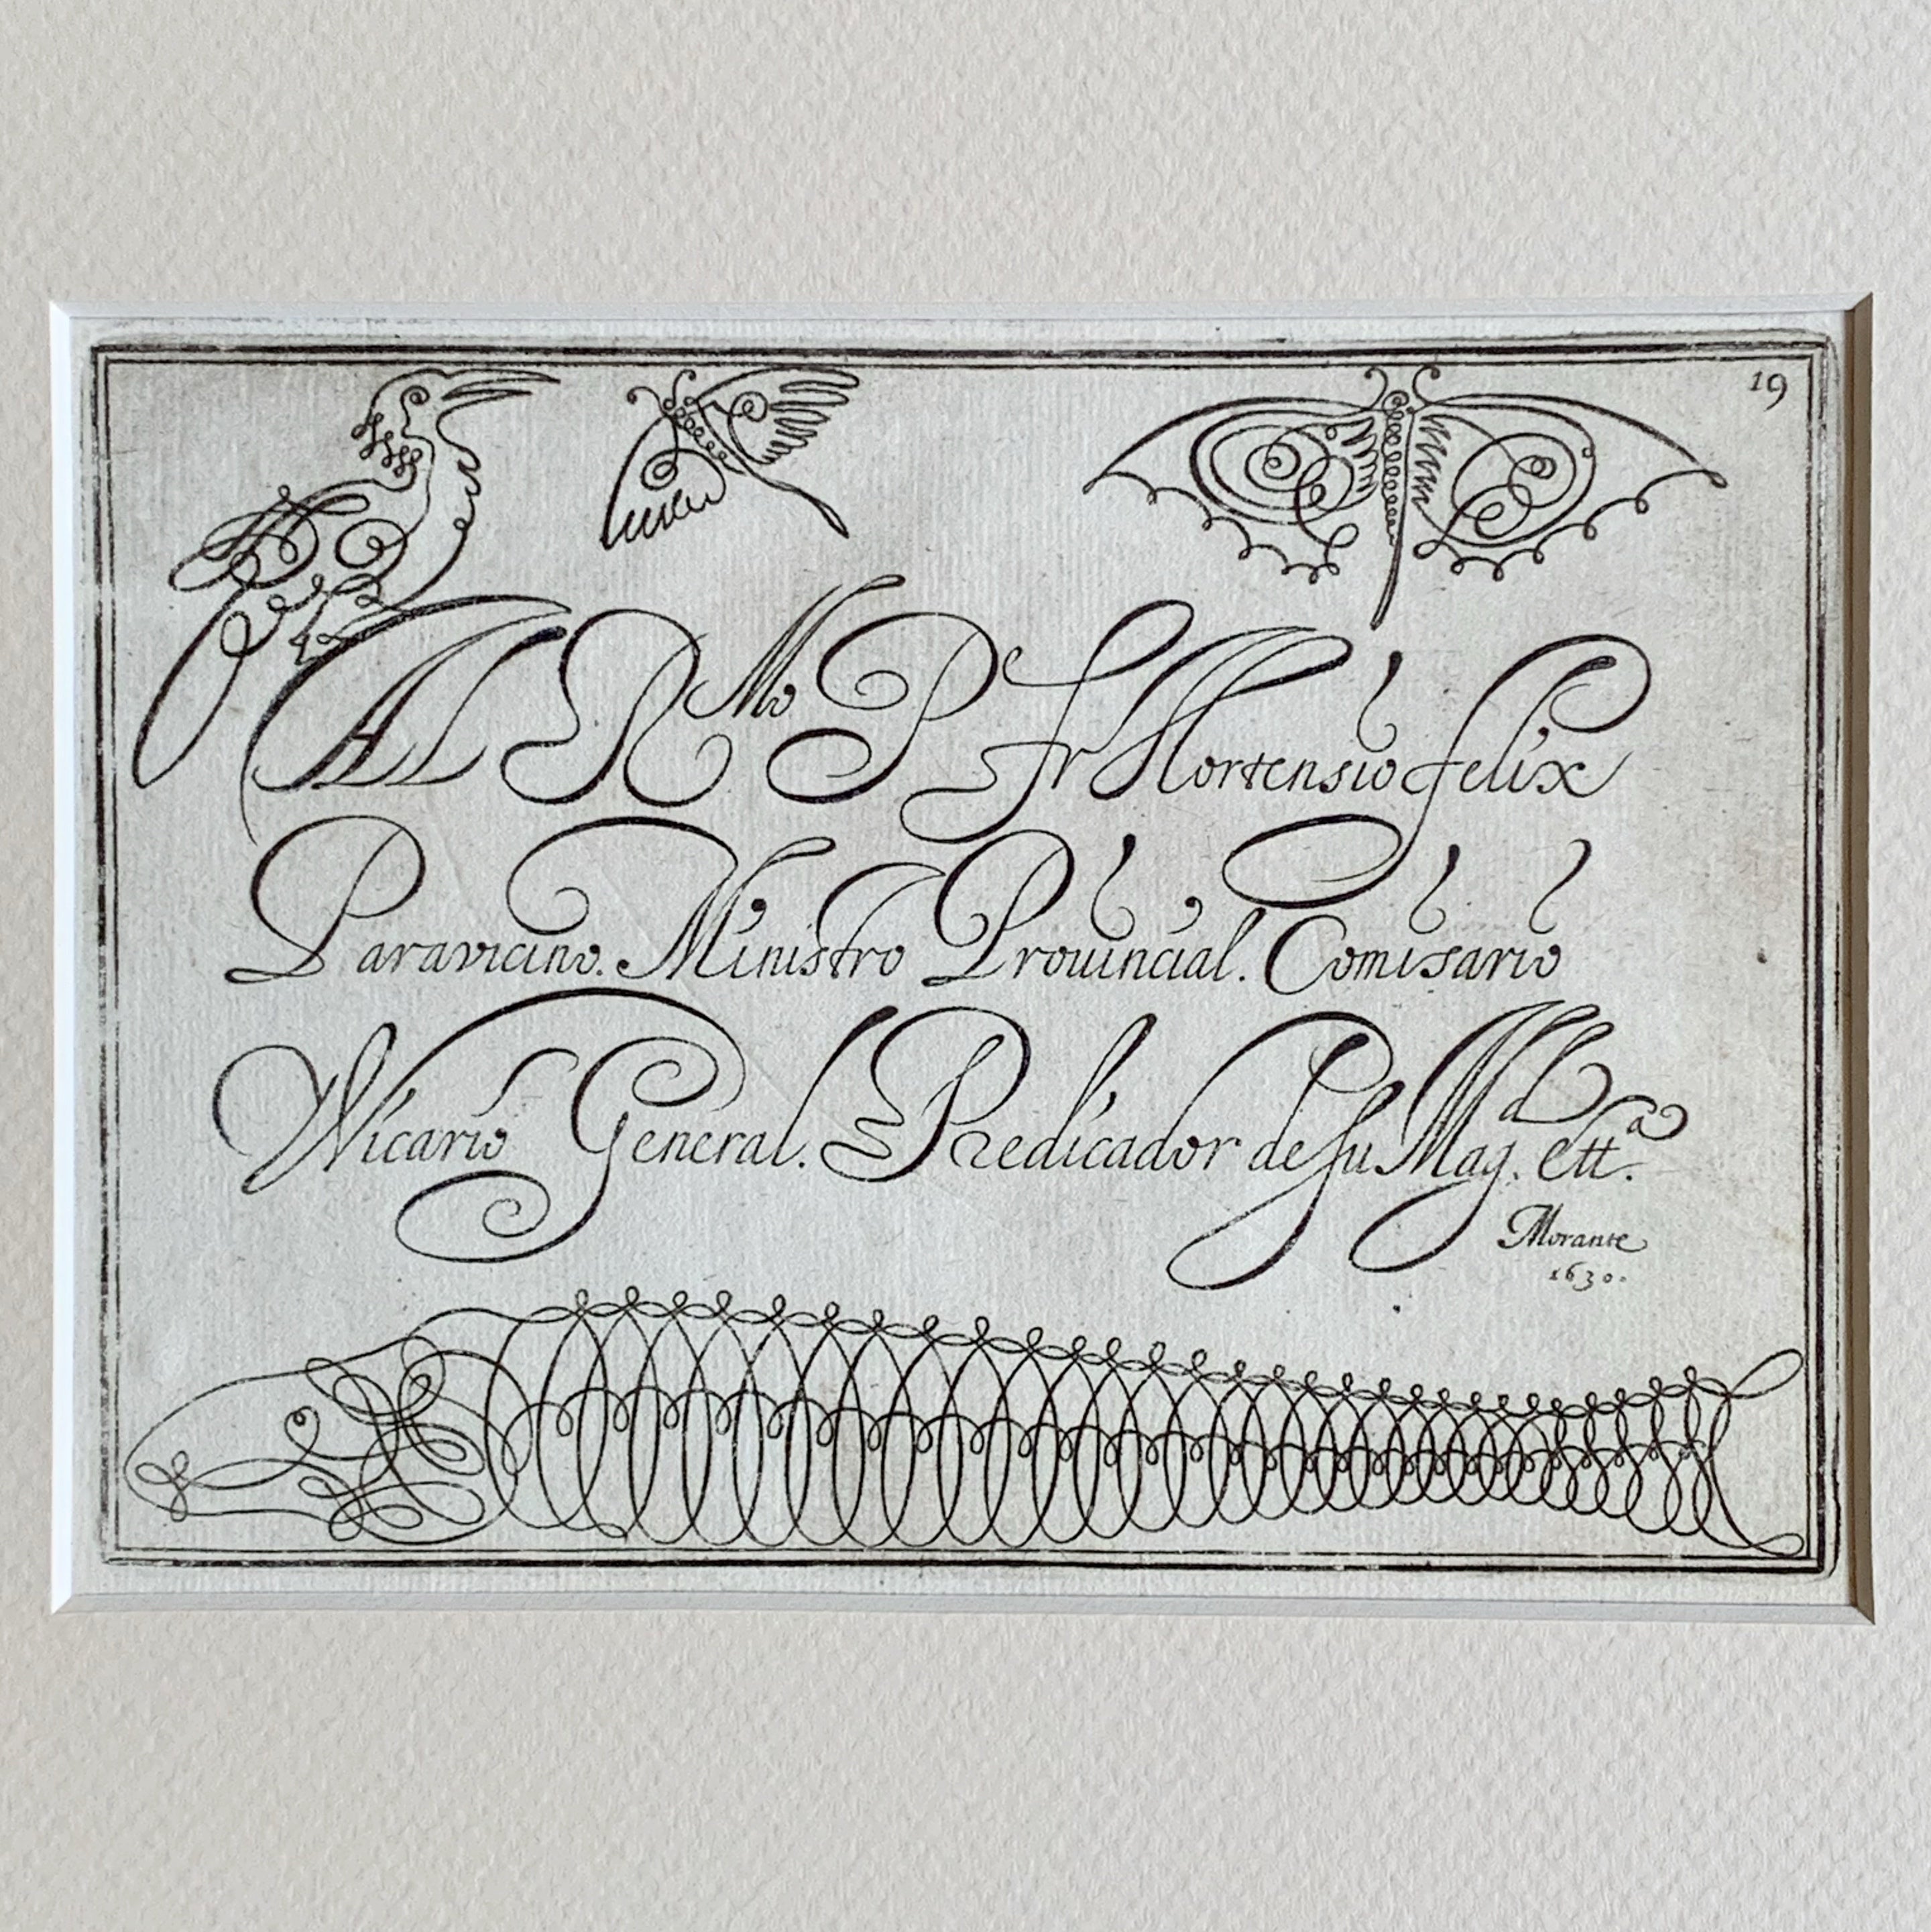 19
Al R.mo P.e fr Hortensio felix
Paravicino. Ministro Provincial. Comisario
Vicario General. Predicador de su Mag.d ett.a
Morante
1630.